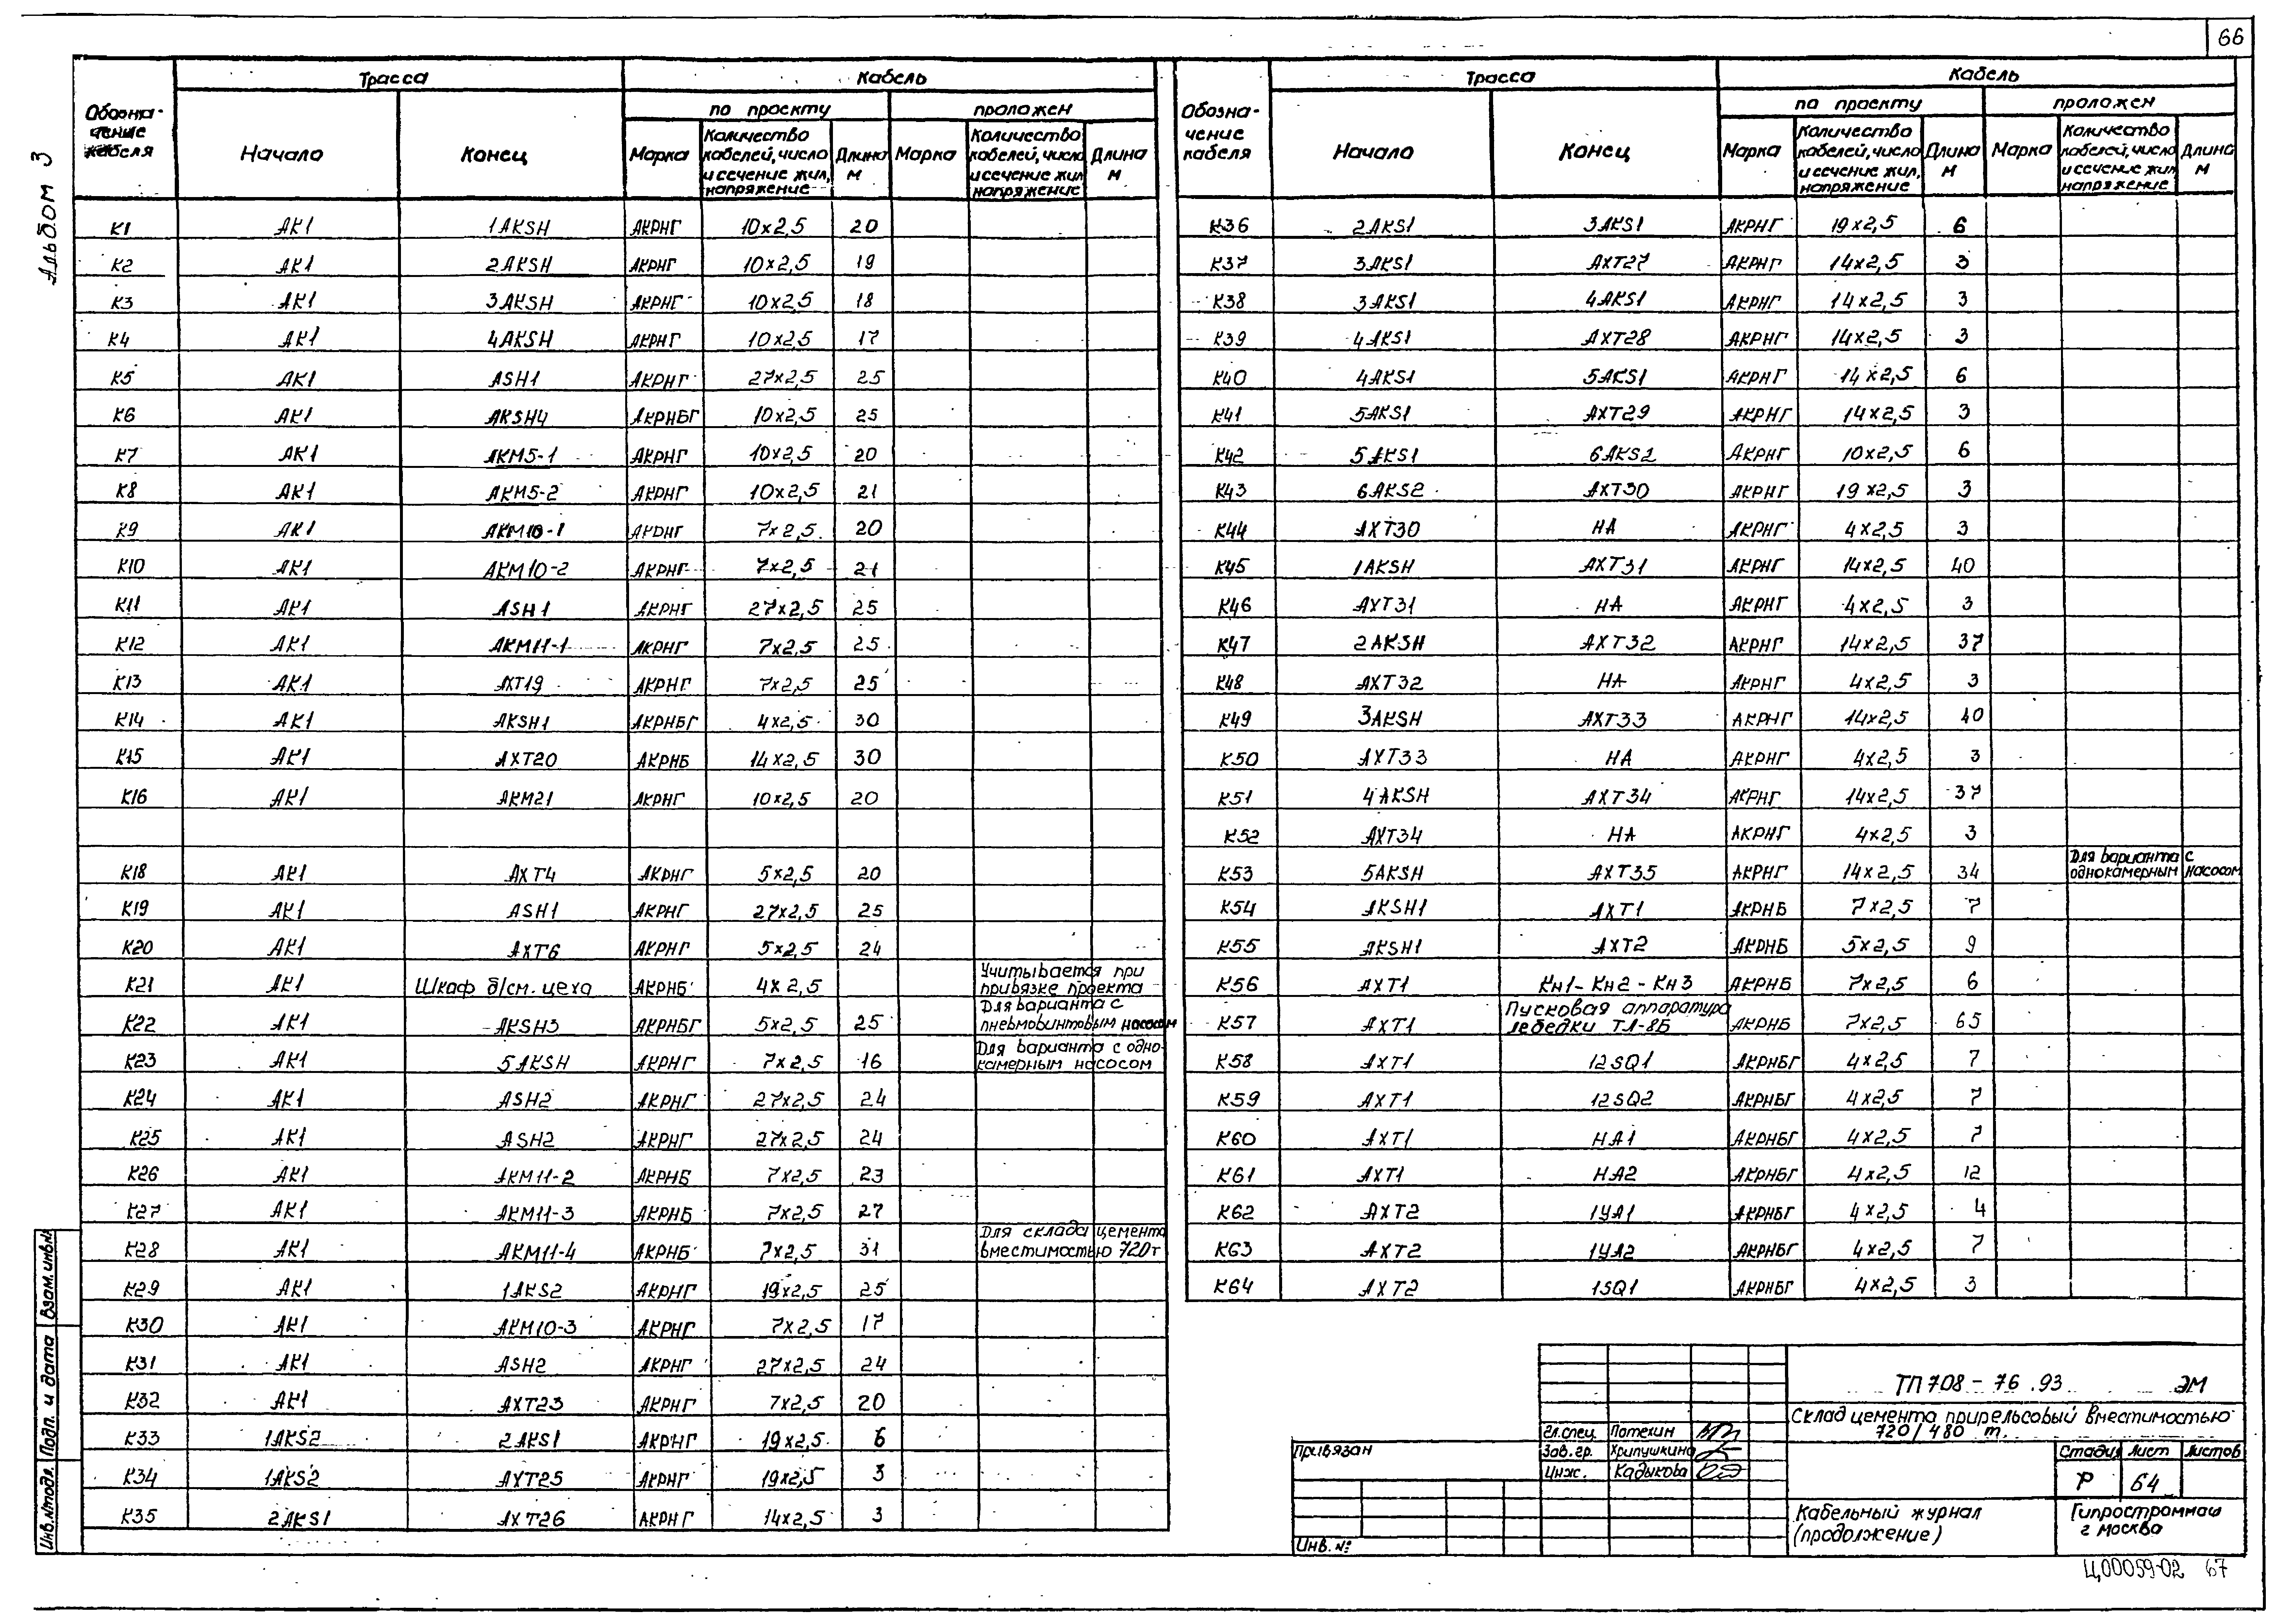 66
Альбом 3
Обозна-
чение
кабеля
Трасса
Кабель
Начало
Конец
по проекту
проложен
Марка
Количество
кабелей, число
и сечение жил,
напряжение
Длина
м
Марка
Количество
кабелей, число
и сечение жил
напряжение
Длина
м
К1 АК1 1AKSH АКРНГ 10х2,5 20
К2 АК1 2AKSH АКРНГ 10х2,5 19
К3 АК1 3AKSH АКРНГ 10х2,5 18
К4 АК1 4AKSH АКРНГ 10х2,5 17
К5 АК1 ASH1 АКРНГ 27х2,5 25
К6 АК1 AKSH4 АКРНБГ 10х2,5 25
К7 АК1 АКМ5-1 АКРНГ 10х2,5 20
К8 АК1 АКМ5-2 АКРНГ 10х2,5 21
К9 АК1 АКМ10-1 АКРНГ 7х2,5 20
К10 АК1 АКМ10-2 АКРНГ 7х2,5 21
К11 АК1 ASH1 АКРНГ 27х2,5 25
К12 АК1 АКМ11-1 АКРНГ 7х2,5 25
К13 АК1 АХТ19 АКРНГ 7х2,5 25
К14 АК1 AKSH1 АКРНБГ 4х2,5 30
К15 АК1 АХТ20 АКРНБ 14х2,5 30
К16 АК1 АКМ21 АКРНГ 10х2,5 20
К18 АК1 АХТ4 АКРНГ 5х2,5 20
К19 АК1 ASH1 АКРНГ 27х2,5 25
К20 АК1 АХТ6 АКРНГ 5х2,5 24
К21 АК1 Шкаф б/см. цеха АКРНБ 4х2,5 Учитывается при
привязке проекта
К22 АК1 AKSH3 АКРНБГ 5х2,5 25 Для варианта с
пневмовинтовым насосом
К23 АК1 5AKSH АКРНГ 7х2,5 16 Для варианта с одно-
камерным насосом
К24 АК1 ASH2 АКРНГ 27х2,5 24
К25 АК1 ASH2 АКРНГ 27х2,5 24
К26 АК1 АКМ11-2 АКРНБ 7х2,5 23
К27 АК1 АКМ11-3 АКРНБ 7х2,5 27
К28 АК1 АКМ11-4 АКРНБ 7х2,5 31 Для склада цемента
вместимостью 720т
К29 АК1 1AKS2 АКРНГ 19х2,5 25
К30 АК1 АКМ10-3 АКРНГ 7х2,5 17
К31 АК1 ASH2 АКРНГ 27х2,5 24
К32 АК1 АХТ23 АКРНГ 7х2,5 20
К33 1AKS2 2AKS1 АКРНГ 19х2,5 6
К34 1AKS2 АХТ25 АКРНГ 19х2,5 3
К35 2AKS1 АХТ26 АКРНГ 14х2,5 3
Обозна-
чение
кабеля
Трасса
Кабель
Начало
Конец
по проекту
проложен
Марка
Количество
кабелей, число
и сечение жил,
напряжение
Длина
м
Марка
Количество
кабелей, число
и сечение жил
напряжение
Длина
м
К36 2AKS1 3AKS1 АКРНГ 19х2,5 6
К37 3AKS1 АХТ27 АКРНГ 14х2,5 3
К38 3AKS1 4AKS1 АКРНГ 14х2,5 3
К39 4AKS1 АХТ28 АКРНГ 14х2,5 3
К40 4AKS1 5AKS1 АКРНГ 14х2,5 6
К41 5AKS1 АХТ29 АКРНГ 14х2,5 3
К42 5AKS1 6AKS2 АКРНГ 10х2,5 6
К43 6AKS2 АХТ30 АКРНГ 19х2,5 3
К44 АХТ30 НА АКРНГ 4х2,5 3
К45 1AKSH АХТ31 АКРНГ 14х2,5 40
К46 АХТ31 НА АКРНГ 4х2,5 3
К47 2AKSH АХТ32 АКРНГ 14х2,5 37
К48 АХТ32 НА АКРНГ 4х2,5 3
К49 3AKSH АХТ33 АКРНГ 14х2,5 40
К50 АХТ33 НА АКРНГ 4х2,5 3
К51 4AKSH АХТ34 АКРНГ 14х2,5 37
К52 АХТ34 НА АКРНГ 4х2,5 3
К53 5AKSH АХТ35 АКРНГ 14х2,5 34 Для варианта с
однокамерным насосом
К54 AKSH1 АХТ1 АКРНБ 7х2,5 7
К55 AKSH1 АХТ2 АКРНБ 5х2,5 9
К56 АХТ1 Кн1-Кн2-Кн3 АКРНБ 7х2,5 6
К57 АХТ1 Пусковая аппаратура
лебедки ТЛ-8Б АКРНБ 7х2,5 65
К58 АХТ1 12SQ1 АКРНБГ 4х2,5 7
К59 АХТ1 12SQ2 АКРНБГ 4х2,5 7
К60 АХТ1 НА1 АКРНБГ 4х2,5 7
К61 АХТ1 НА2 АКРНБГ 4х2,5 12
К62 АХТ2 1УА1 АКРНБГ 4х2,5 4
К63 АХТ2 1УА2 АКРНБГ 4х2,5 7
К64 АХТ2 1SQ1 АКРНБГ 4х2,5 3
Инв.№подл. Подп. и дата Взам.инв.№
Привязан
Инв. №
Гл.спец. Потехин
Зав.гр. Хрипушкина
Инж. Кадыкова
ТП 708-76.93 ЭМ
Склад цемента прирельсовый вместимостью
720/480 т.
Стадия Лист Листов
Р 64
Кабельный журнал
(продолжение)
Гипростроммаш
г Москва
Ц00059-02 67